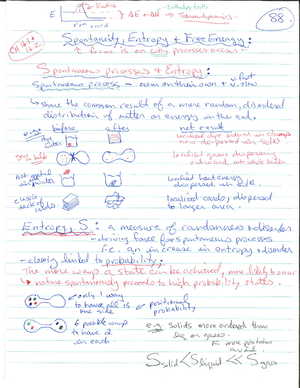 E
Kinetics
Enthalpy
ΔE + ΔH
→ Thermodynamics.
88.
Ch 16.1 + 16.2
Spontaneity, Entropy + Free Energy:
focus is on why processes occurs.
Spontaneous processes + Entropy:
Spontaneous process - occur on their own + v. fast v. slow
share the common result of a more random, disordered
distribution of matter or energy in the end.
e.g. before after net result
localized dye ordered in clumps
now dispersed in soln
gas bulbs localized gases dispersing
hot metal in water localized heat energy
dispersed in
deck of cards localized cards, dispersed
to larger area.
Entropy, S: a measure of randomness + disorder
- driving force for spontaneous processes
i.e. an increase in entropy + disorder
- closely linked to probability:
The more ways a state can be achieved, more likely to occur
nature spontaneously proceeds to high probability states
only 1 way
to have all is one side
positional probability
6 possible ways
to have 2
in each.
e.g. Solids more ordered than
liq or gases.
more positions
Ssolid < Sliquid << Sgas